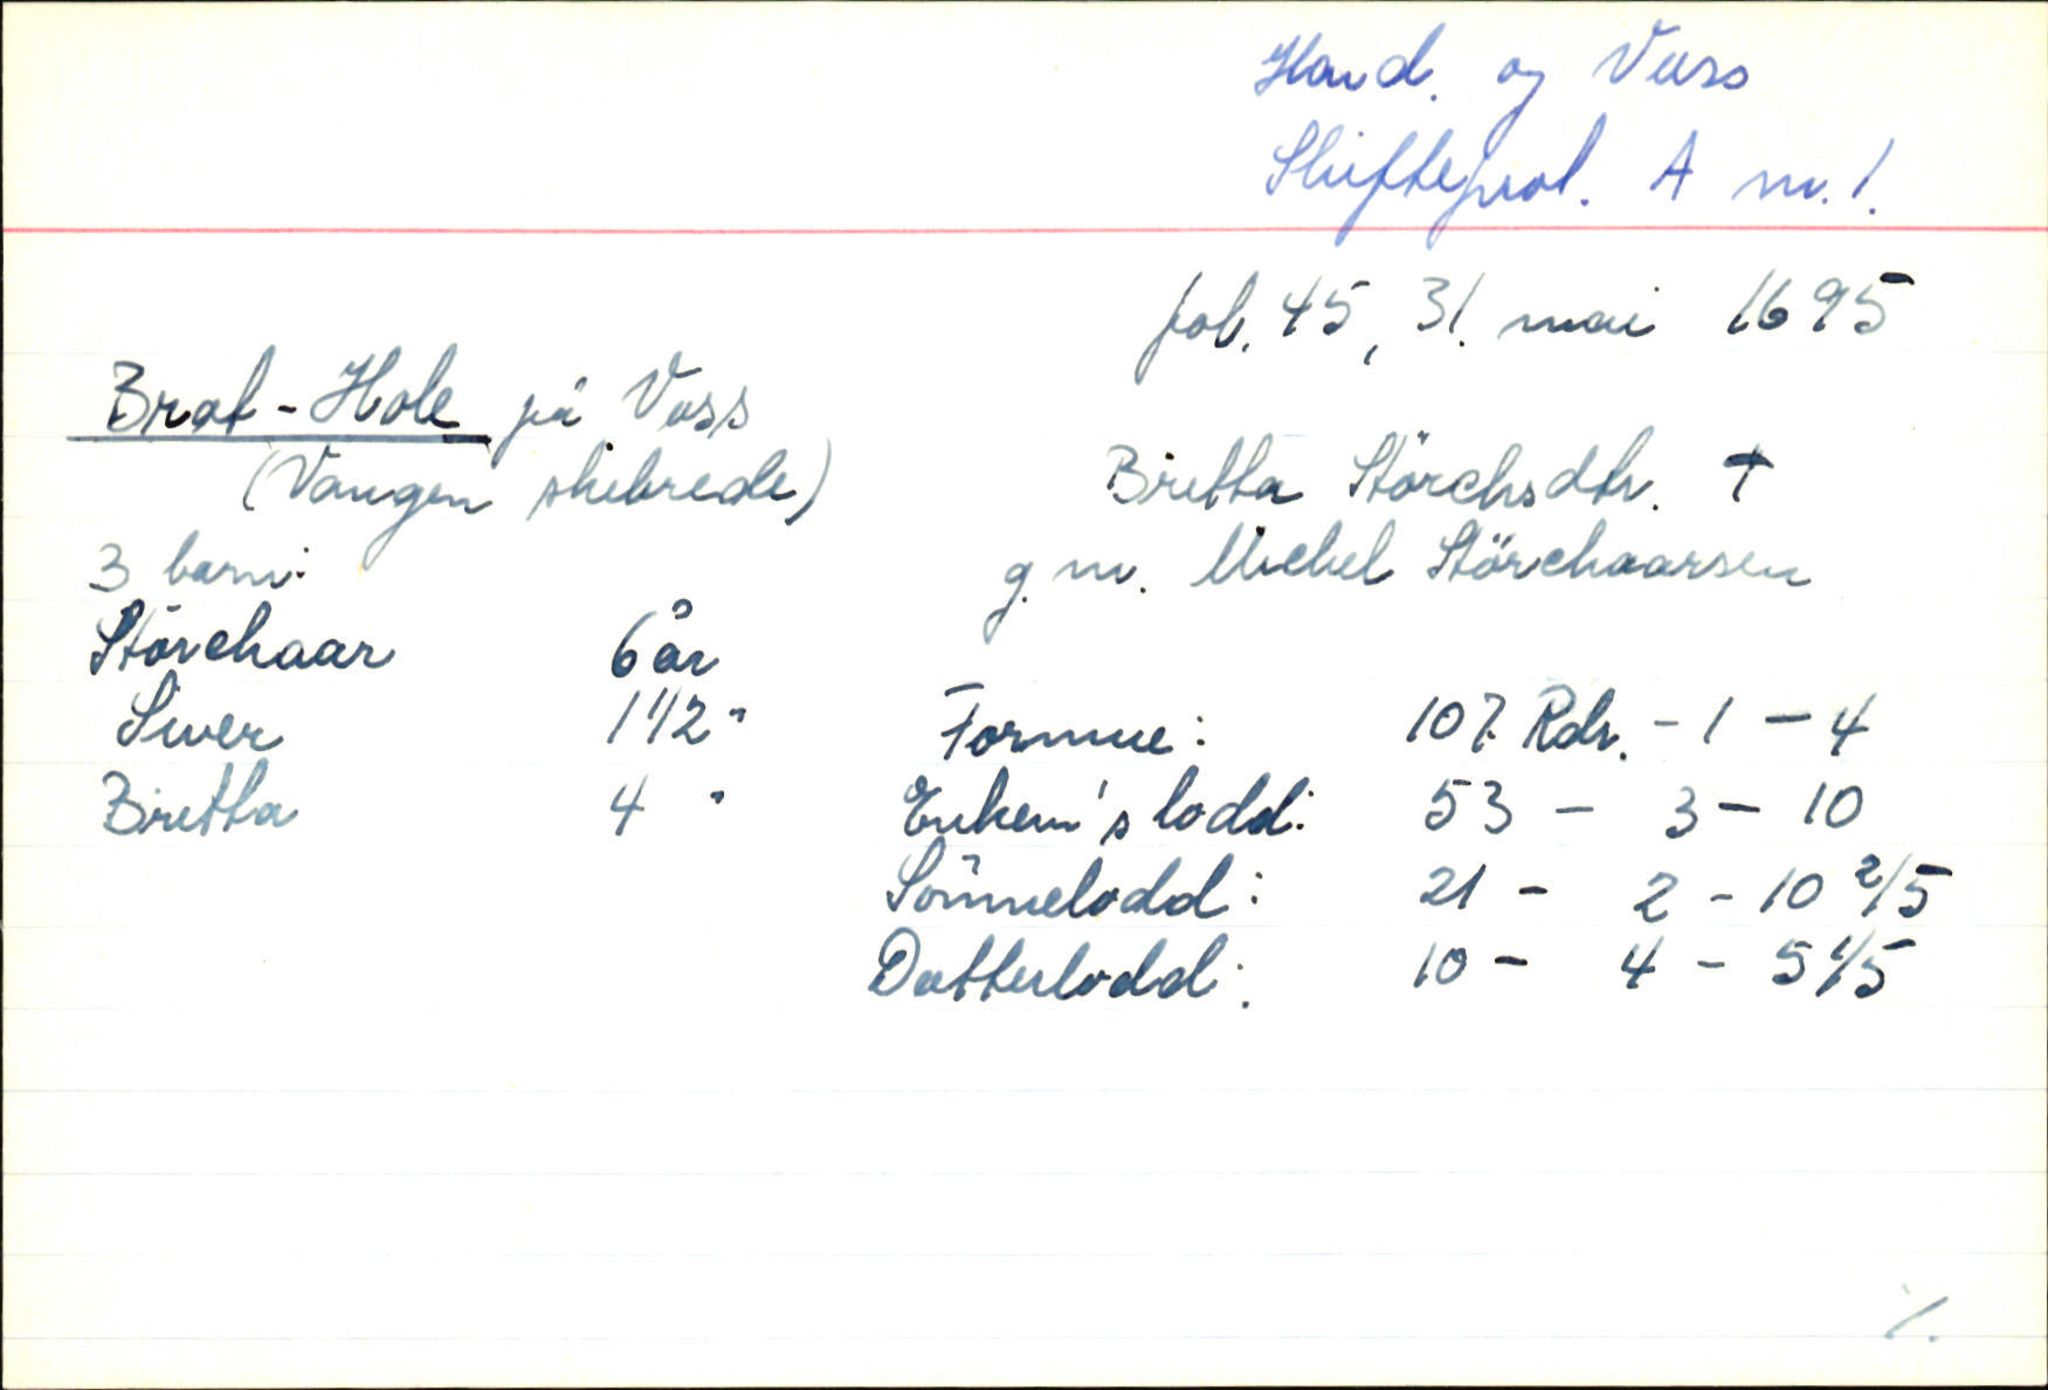 Hard. og Voss
Skifteprot. A nr. 1.
fol. 45, 31. mai 1695
Brat-Hole på Voss
(Vangen skibrede)
Britta Störchsdtr. †
g. m. Michel Störchaarsen
3 barn:
Störchaar 6 år
Siver 1 1/2 "
Britta 4 "
Formue: 107 Rdr. - 1 - 4
Enkem's lodd: 53 - 3 - 10
Sönnelodd: 21 - 2 - 10 2/5
Datterlodd: 10 - 4 - 5 1/5